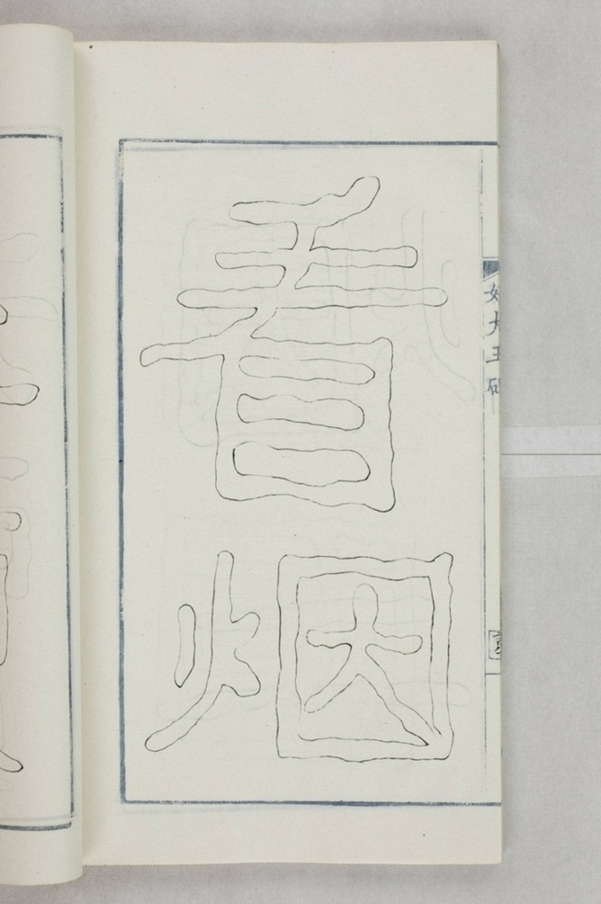 看烟
好大王碑